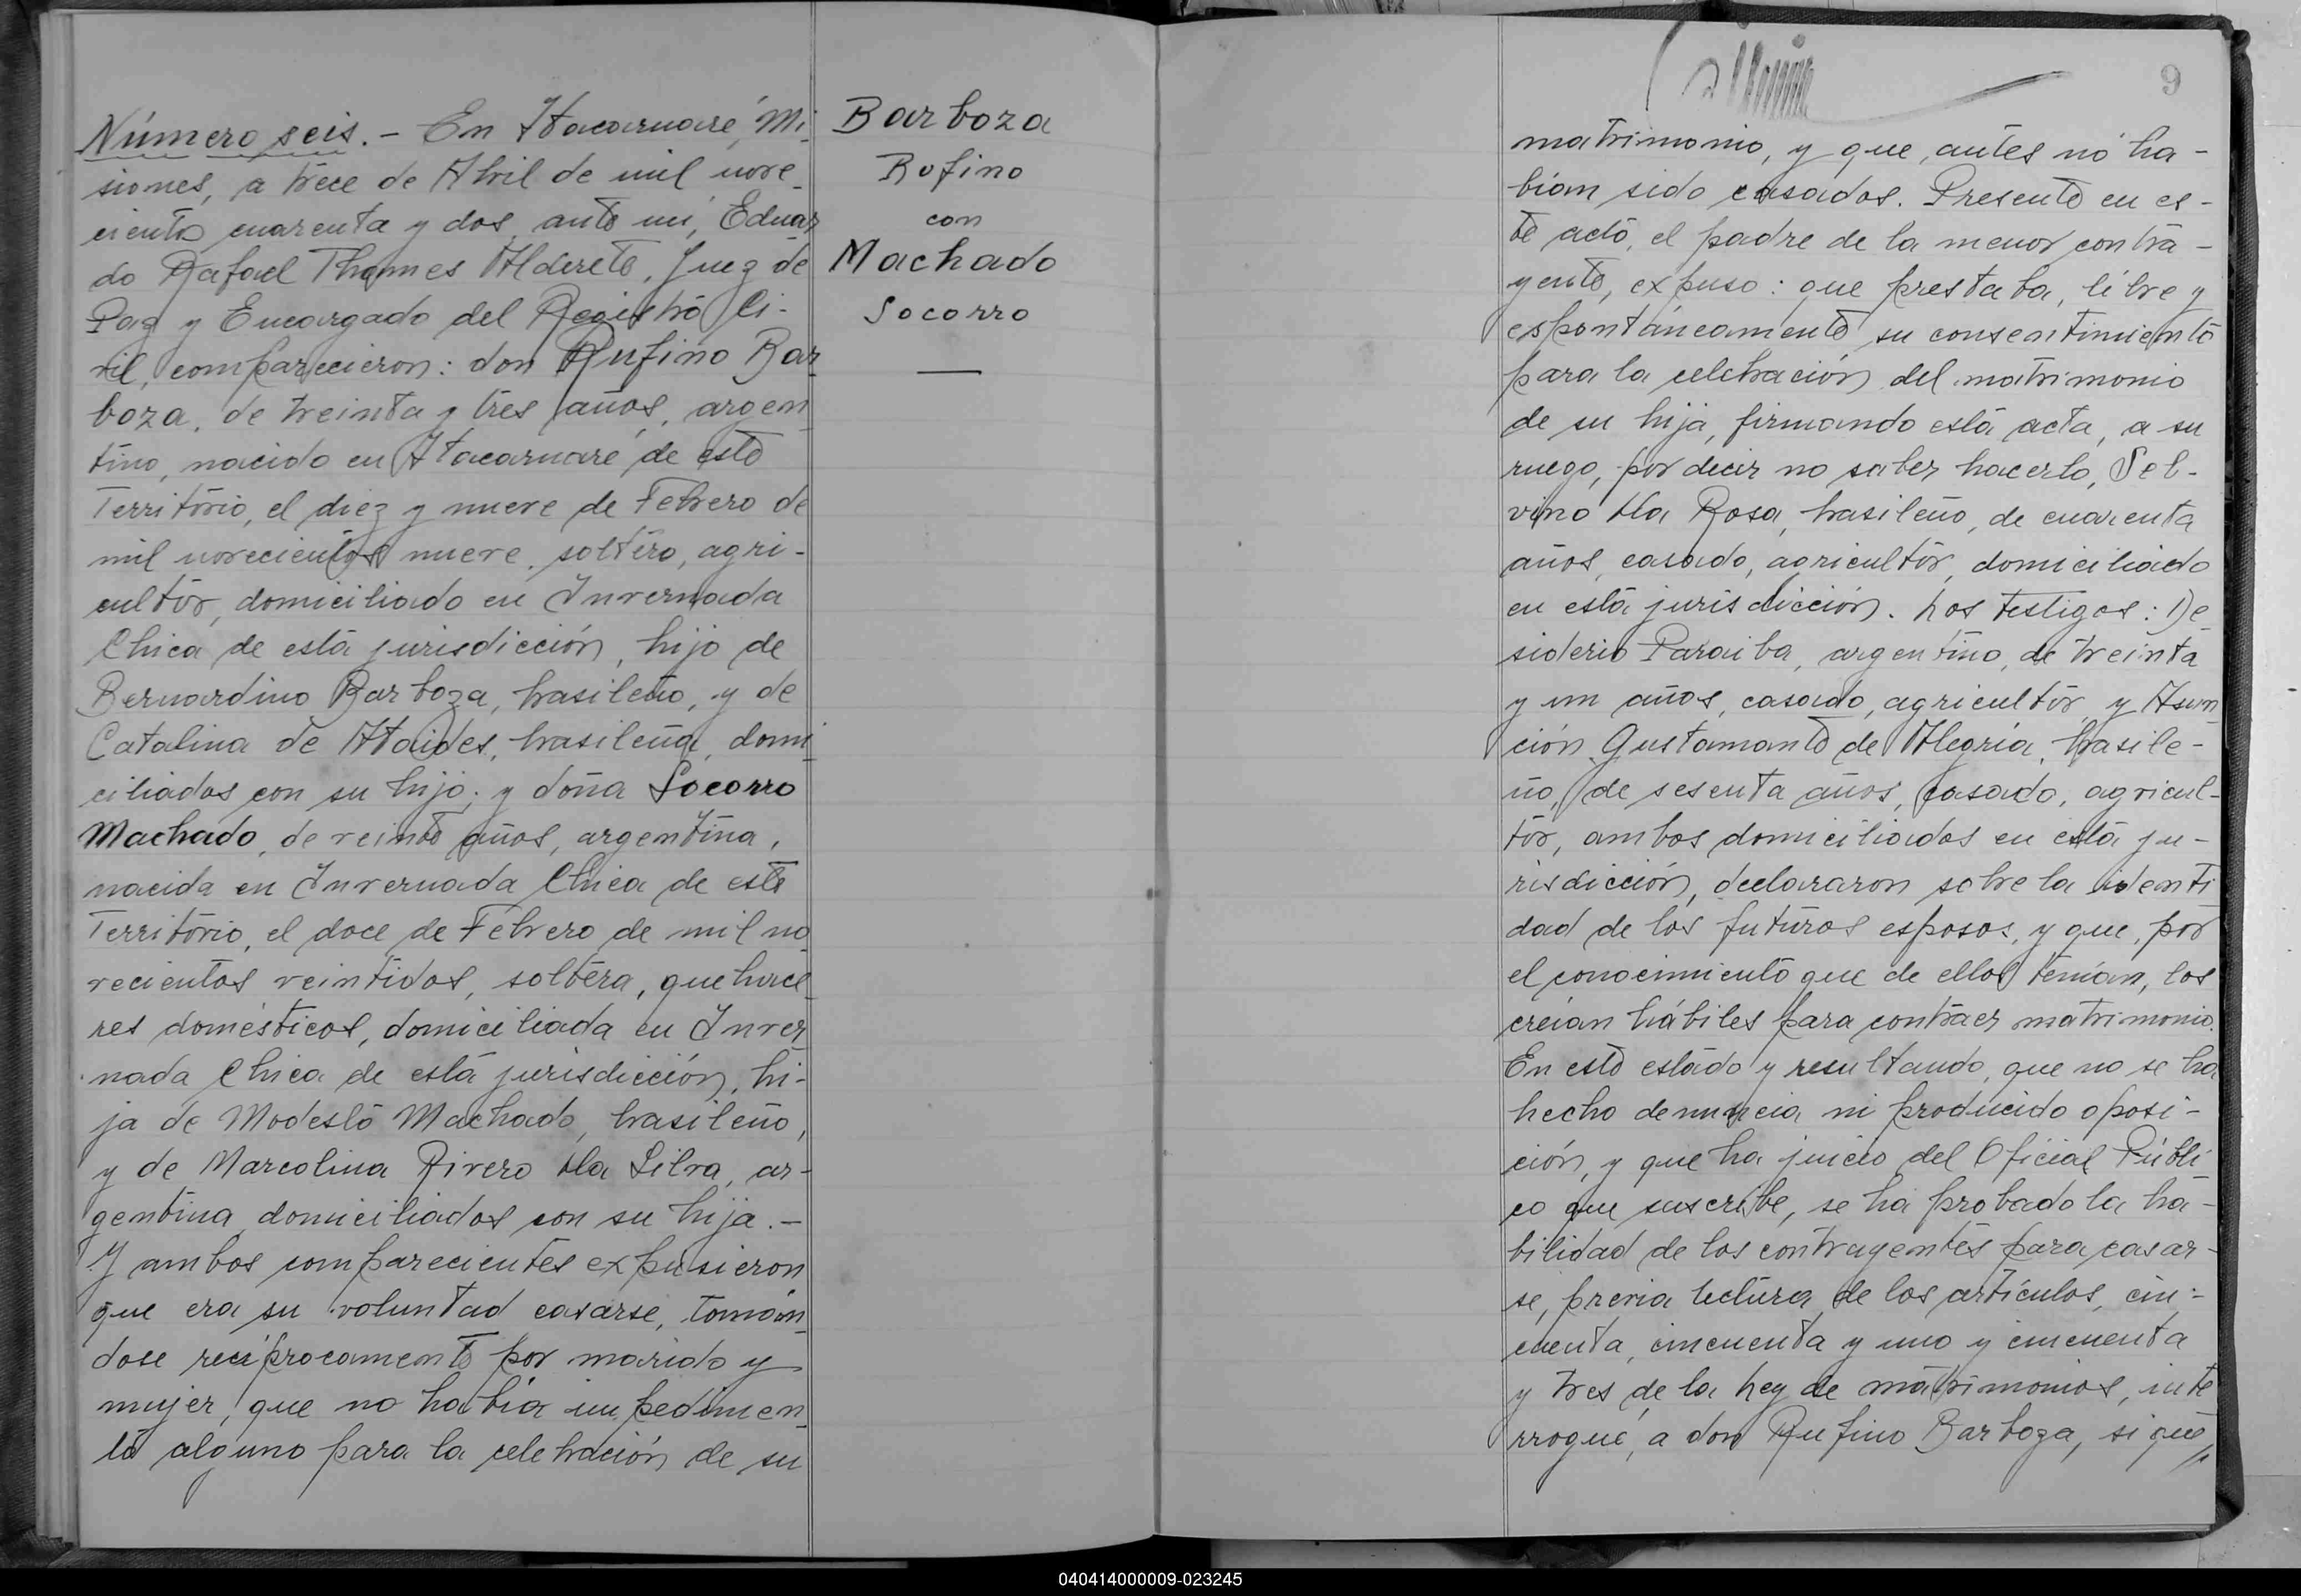 Número seis. - En Itacaruaré, Mi-
siones, a trece de Abril de mil nove-
ciento cuarenta y dos, ante mi, Eduar-
do Rafael Thames Alderete, Juez de
Paz y Encargado del Registro Ci-
vil, comparecieron: don Rufino Bar-
boza, de treinta y tres años, argen-
tino, nacido en Itacaruaré de este
Territorio, el diez y nueve de Febrero de
mil novecientos nueve, soltero, agri-
cultor, domiciliado en Invernada
Chica de esta jurisdicción, hijo de
Bernardino Barboza, brasileño, y de
Catalina de Ataides, brasileña, domi-
ciliados con su hijo; y doña Socorro
Machado, de veinte años, argentina,
nacida en Invernada Chica de este
Territorio, el doce de Febrero de mil no-
vecientos veintidos, soltera, quehace-
res domésticos, domiciliada en Inver-
nada Chica de esta jurisdicción, hi-
ja de Modesto Machado, brasileño,
y de Marcolina Rivero da Silva, ar-
gentina, domiciliados con su hija. -
Y ambos comparecientes expusieron
que era su voluntad casarse, tomán-
dose recíprocamente por marido y
mujer, que no había impedimen-
to alguno para la celebración de su
Barboza
Rufino
con
Machado
Socorro
9
matrimonio, y que, antes no ha-
bían sido casados. Presente en es-
te acto, el padre de la menor contra-
yente, expuso: que prestaba, libre y
espontáneamente su consentimiento
para la celebración del matrimonio
de su hija, firmando esta acta, a su
ruego, por decir no saber hacerlo, Sel-
vino da Rosa, brasileño, de cuarenta
años, casado, agricultor, domiciliado
en esta jurisdicción. Los testigos: De
siderio Paraiba, argentino, de treinta
y un años, casado, agricultor, y Asun-
ción Gustamante de Alegría, brasile-
ño, de sesenta años, casado, agricul-
tor, ambos domiciliados en esta ju-
risdicción, declararon sobre la identi
dad de los futuros esposos, y que, por
el conocimiento que de ellos tenían, los
creían hábiles para contraer matrimonio.
En este estado y resultando, que no se ha
hecho denuncia ni producido oposi-
ción, y que ha juicio del Oficial Públi
co que suscribe, se ha probado la ha-
bilidad de los contrayentes para casar-
se, previa lectura de los artículos, cin-
cuenta, cincuenta y uno y cincuenta
y tres de la Ley de matrimonios, inte
rrogué, a don Rufino Barboza, si que
040414000009-023245